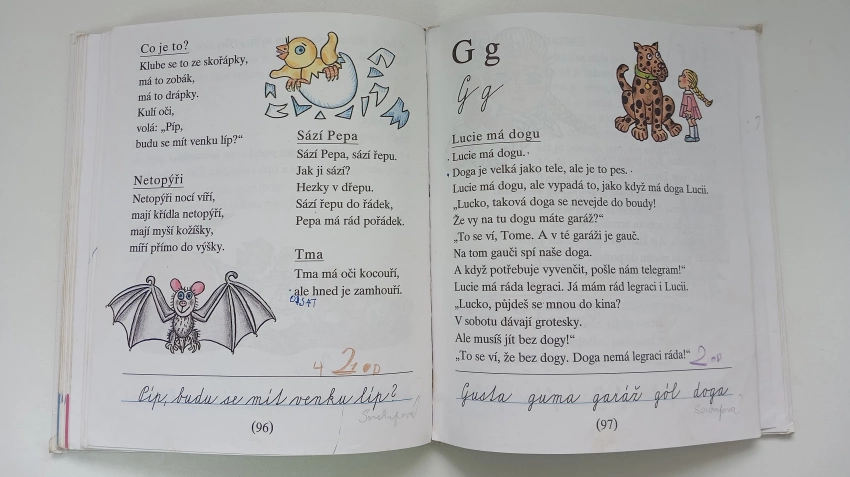 Co je to?
Klube se to ze skořápky,
má to zobák,
má to drápky.
Kulí oči,
volá: „Píp,
budu se mít venku líp?“
Netopýři
Netopýři nocí víří,
mají křídla netopýří,
mají myší kožíšky,
míří přímo do výšky.
Sází Pepa
Sází Pepa, sází řepu.
Jak ji sází?
Hezky v dřepu.
Sází řepu do řádek,
Pepa má rád pořádek.
Tma
Tma má oči kocouří,
ale hned je zamhouří.
4
Píp, budu se mít venku líp?
(96)
G g
G g
Lucie má dogu
Lucie má dogu.
Doga je velká jako tele, ale je to pes.
Lucie má dogu, ale vypadá to, jako když má doga Lucii.
„Lucko, taková doga se nevejde do boudy!
Že vy na tu dogu máte garáž?“
„To se ví, Tome. A v té garáži je gauč.
Na tom gauči spí naše doga.
A když potřebuje vyvenčit, pošle nám telegram!“
Lucie má ráda legraci. Já mám rád legraci i Lucii.
„Lucko, půjdeš se mnou do kina?
V sobotu dávají grotesky.
Ale musíš jít bez dogy!“
„To se ví, že bez dogy. Doga nemá legraci ráda!“
Gusta guma garáž gól doga
(97)